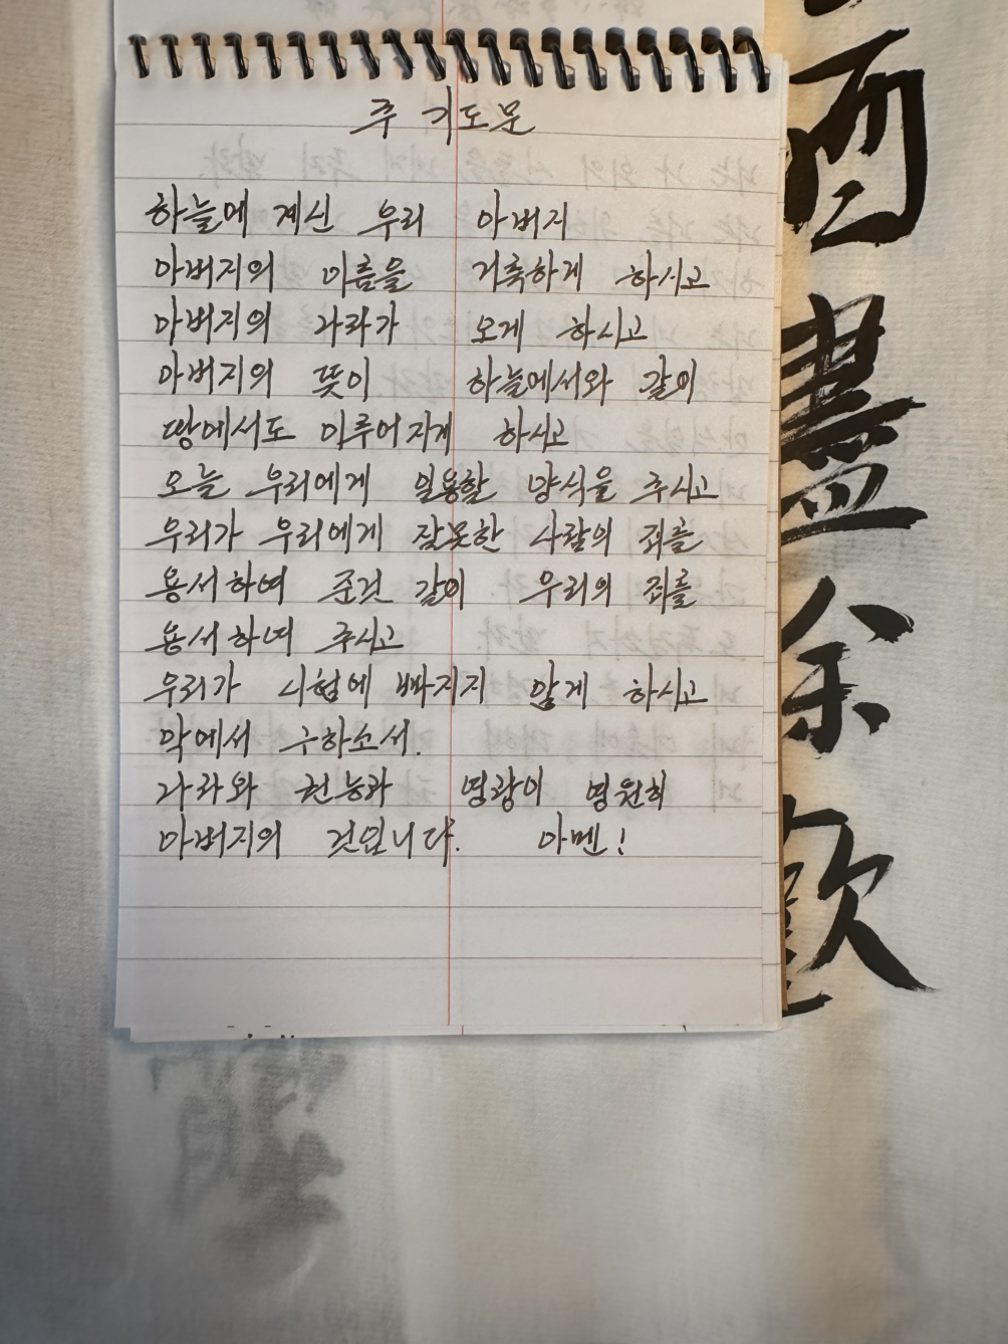 주 기도문
하늘에 계신 우리 아버지
아버지의 이름을 거축하게 하시고
아버지의 나라가 오게 하시고
아버지의 뜻이 하늘에서와 같이
땅에서도 이루어지게 하시고
오늘 우리에게 일용할 양식을 주시고
우리가 우리에게 잘못한 사람의 죄를
용서하여 준것 같이 우리의 죄를
용서하여 주시고
우리가 시험에 빠지지 않게 하시고
악에서 구하소서.
나라와 권능과 영광이 영원히
아버지의 것입니다. 아멘!
酒
盡
余
歡